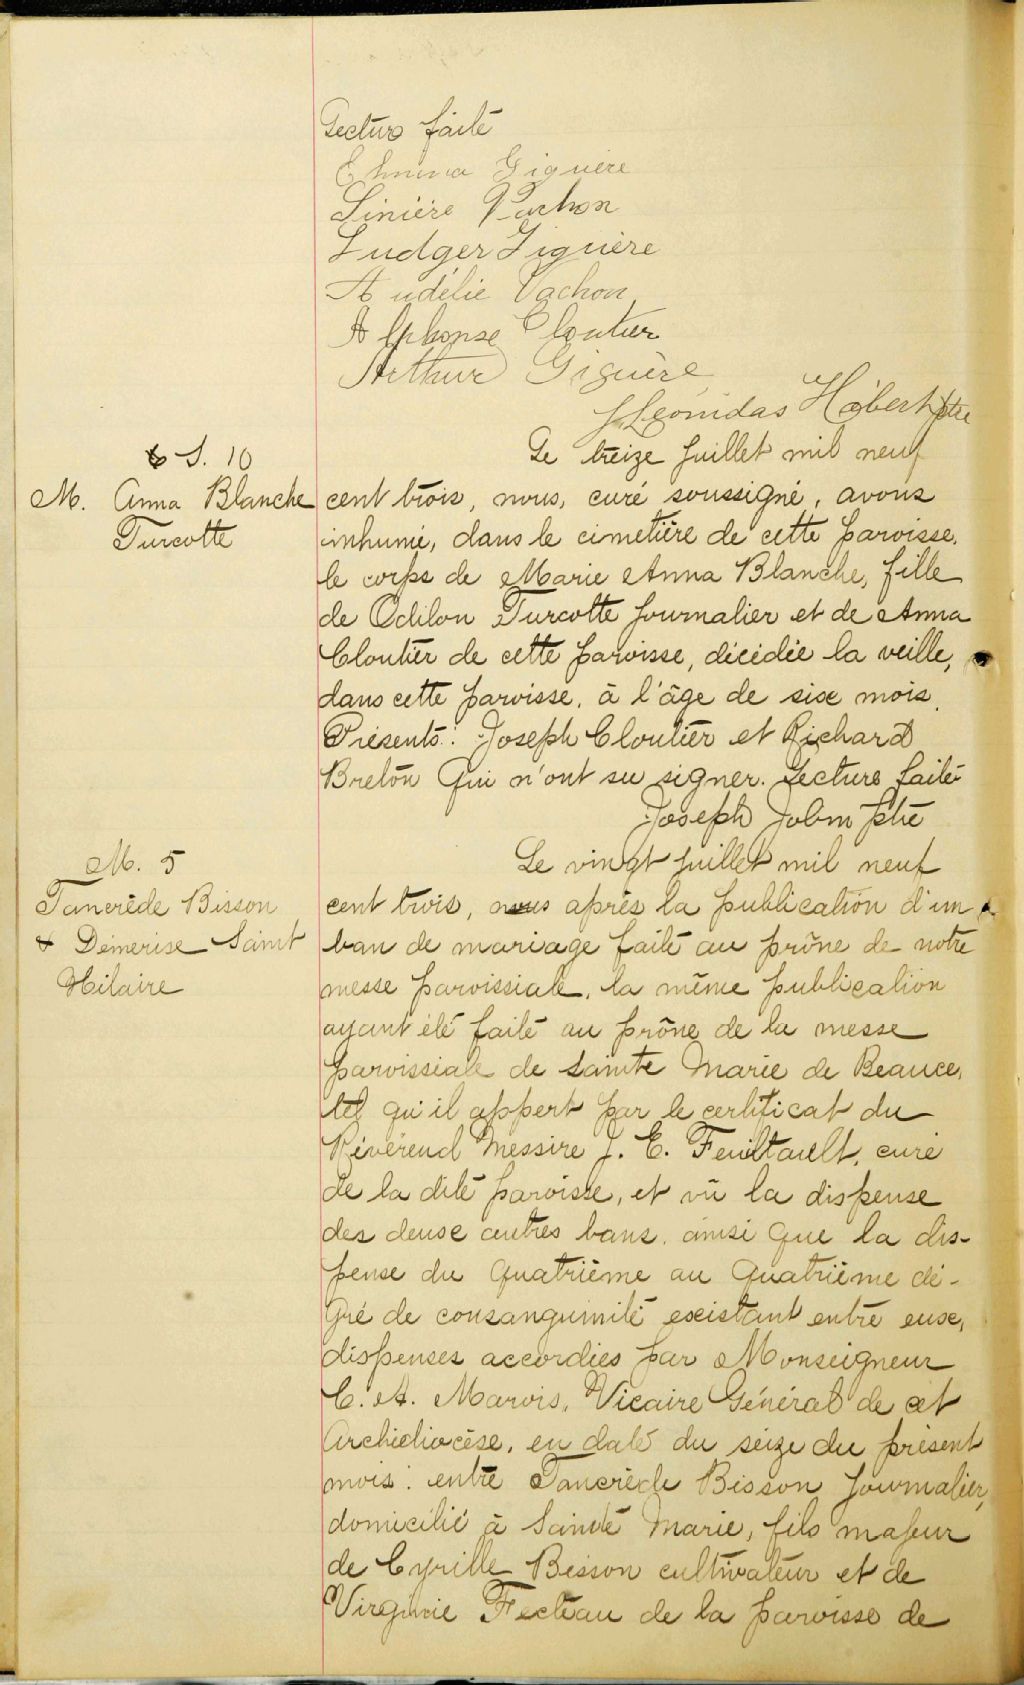 Lecture faite
Emma Giguère
Linière Vachon
Ludger Giguère
Audélie Vachon
Alphonse Cloutier
Arthur Giguère
J Léonidas Hébert ptre
S. 10
M. Anna Blanche
Turcotte
Le treize juillet mil neuf
cent trois, nous, curé soussigné, avons
inhumé, dans le cimetière de cette paroisse,
le corps de Marie Anna Blanche, fille
de Odilon Turcotte journalier et de Anna
Cloutier de cette paroisse, décédée la veille,
dans cette paroisse, à l'âge de six mois.
Présents: Joseph Cloutier et Richard
Breton qui n'ont su signer. Lecture faite
Joseph Jobin ptre
M. 5
Tancrède Bisson
& Démerise Saint
Hilaire
Le vingt juillet mil neuf
cent trois, nous après la publication d'un
ban de mariage faite au prône de notre
messe paroissiale, la même publication
ayant été faite au prône de la messe
paroissiale de Sainte Marie de Beauce,
tel qu'il appert par le certificat du
Révérend Messire J. E. Feuiltault, curé
de la dite paroisse, et vû la dispense
des deux autres bans, ainsi que la dis-
pense du quatrième au quatrième de-
gré de consanguinité existant entre eux,
dispenses accordées par Monseigneur
C. A. Marois, Vicaire Général de cet
Archidiocèse, en date du seize du présent
mois: entre Tancrède Bisson journalier,
domicilié à Sainte Marie, fils majeur
de Cyrille Bisson cultivateur et de
Virginie Fecteau de la paroisse de